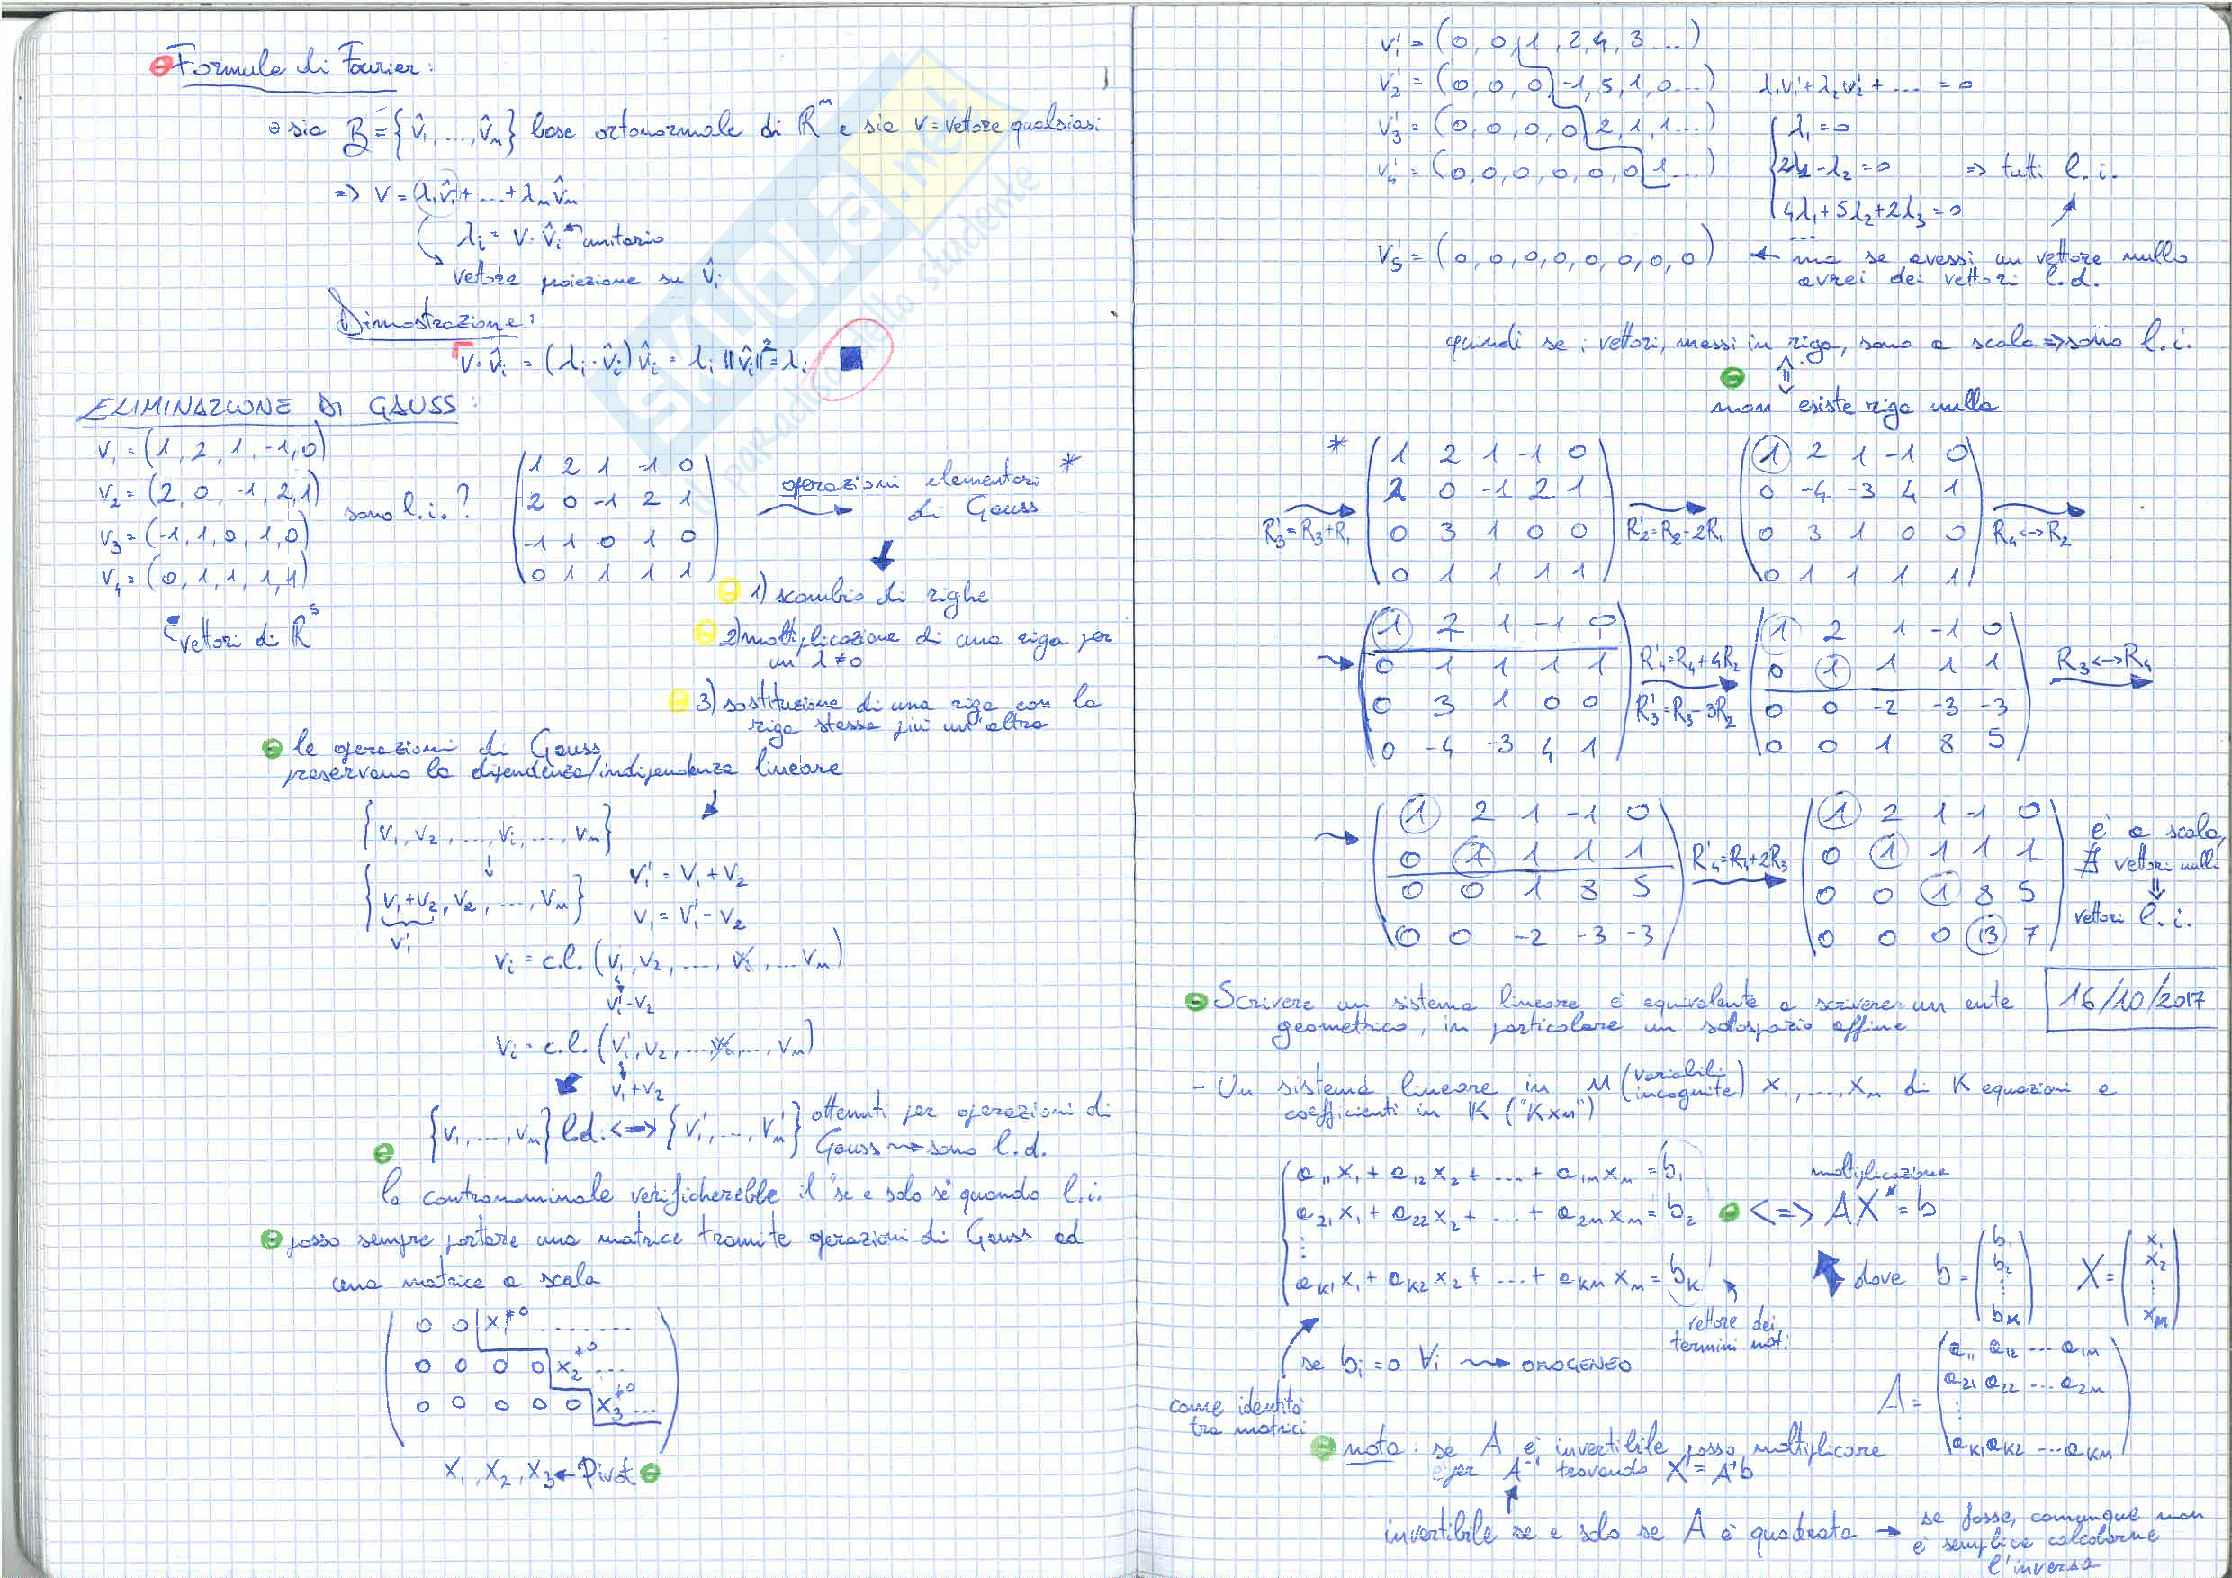 Formule di Fourier:
sia B = {v̂₁, ..., v̂ₙ} base ortonormale di Rⁿ e sia v = vettore qualsiasi
=> v = λ₁v̂₁ + ... + λₙv̂ₙ
λᵢ = v · v̂ᵢ ← unitario
vettore proiezione su v̂ᵢ
Dimostrazione:
v·v̂ᵢ = (λᵢ·v̂ᵢ)v̂ᵢ = λᵢ ||v̂ᵢ||² = λᵢ ■
ELIMINAZIONE DI GAUSS:
v₁ = (1, 2, 1, -1, 0)
v₂ = (2, 0, -1, 2, 1)
v₃ = (-1, 1, 0, 1, 0)
v₄ = (0, 1, 1, 1, 1)
vettori di R⁵
sono l.i.?
1 2 1 -1 0
2 0 -1 2 1
-1 1 0 1 0
0 1 1 1 1
operazioni elementari *
di Gauss
1) scambio di righe
2) moltiplicazione di una riga per
un λ ≠ 0
3) sostituzione di una riga con la
riga stessa più un'altra
le operazioni di Gauss
preservano la dipendenza/indipendenza lineare
{v₁, v₂, ..., vᵢ, ..., vₙ}
{v₁+v₂, v₂, ..., vₙ}
v₁'
v₁' = v₁ + v₂
v₁ = v₁' - v₂
vᵢ = c.l. (v₁, v₂, ..., vᵢ, ... vₙ)
v₁'-v₂
vᵢ = c.l. (v₁', v₂, ..., vᵢ, ..., vₙ)
v₁+v₂
{v₁, ..., vₙ} l.d. <=> {v₁', ..., vₙ'} ottenuti per operazioni di
Gauss → sono l.d.
la contronominale verificherebbe il "se e solo se" quando l.i.
posso sempre portare una matrice tramite operazioni di Gauss ad
una matrice a scala
0 0 x₁≠0 ........
0 0 0 0 x₂≠0 ...
0 0 0 0 0 x₃≠0 ...
x₁, x₂, x₃ ← Pivot
v₁' = (0, 0, 1, 2, 4, 3 ...)
v₂' = (0, 0, 0, -1, 5, 1, 0 ...)
v₃' = (0, 0, 0, 0, 2, 1, 1 ...)
v₄' = (0, 0, 0, 0, 0, 0, 1 ...)
λ₁v₁' + λ₂v₂' + ... = 0
λ₁ = 0
2λ₁ - λ₂ = 0 => tutti l.i.
4λ₁ + 5λ₂ + 2λ₃ = 0
...
v₅ = (0, 0, 0, 0, 0, 0, 0, 0) ← ma se avessi un vettore nullo
avrei dei vettori l.d.
quindi se i vettori, messi in riga, sono a scala => sono l.i.
non esiste riga nulla
*
R₃' = R₃+R₁
1 2 1 -1 0
2 0 -1 2 1
0 3 1 0 0
0 1 1 1 1
R₂' = R₂-2R₁
1 2 1 -1 0
0 -4 -3 4 1
0 3 1 0 0
0 1 1 1 1
R₄ <-> R₂
1 2 1 -1 0
0 1 1 1 1
0 3 1 0 0
0 -4 -3 4 1
R₄' = R₄+4R₂
R₃' = R₃-3R₂
1 2 1 -1 0
0 1 1 1 1
0 0 -2 -3 -3
0 0 1 8 5
R₃ <-> R₄
1 2 1 -1 0
0 1 1 1 1
0 0 1 8 5
0 0 -2 -3 -3
R₄' = R₄+2R₃
1 2 1 -1 0
0 1 1 1 1
0 0 1 8 5
0 0 0 13 7
è a scala,
∄ vettori nulli
vettori l.i.
16/10/2017
Scrivere un sistema lineare è equivalente a scrivere un ente
geometrico, in particolare un sottospazio affine
- Un sistema lineare in n (variabili incognite) x₁, ..., xₙ di K equazioni e
coefficienti in K ("K×n")
a₁₁x₁ + a₁₂x₂ + ... + a₁ₙxₙ = b₁
a₂₁x₁ + a₂₂x₂ + ... + a₂ₙxₙ = b₂
⋮
aₖ₁x₁ + aₖ₂x₂ + ... + aₖₙxₙ = bₖ
moltiplicazione
<=> AX = b
vettore dei
termini not.
dove b = (b₁ b₂ ⋮ bₖ) X = (x₁ x₂ ⋮ xₙ)
se bᵢ = 0 ∀i → OMOGENEO
A =
a₁₁ a₁₂ ... a₁ₙ
a₂₁ a₂₂ ... a₂ₙ
⋮
aₖ₁ aₖ₂ ... aₖₙ
come identità
tra matrici
nota: se A è invertibile posso moltiplicare
per A⁻¹ trovando X = A⁻¹b
invertibile se e solo se A è quadrata → se fosse, comunque non
è semplice calcolarne
l'inversa
SKUOLA.net
il paradiso dello studente